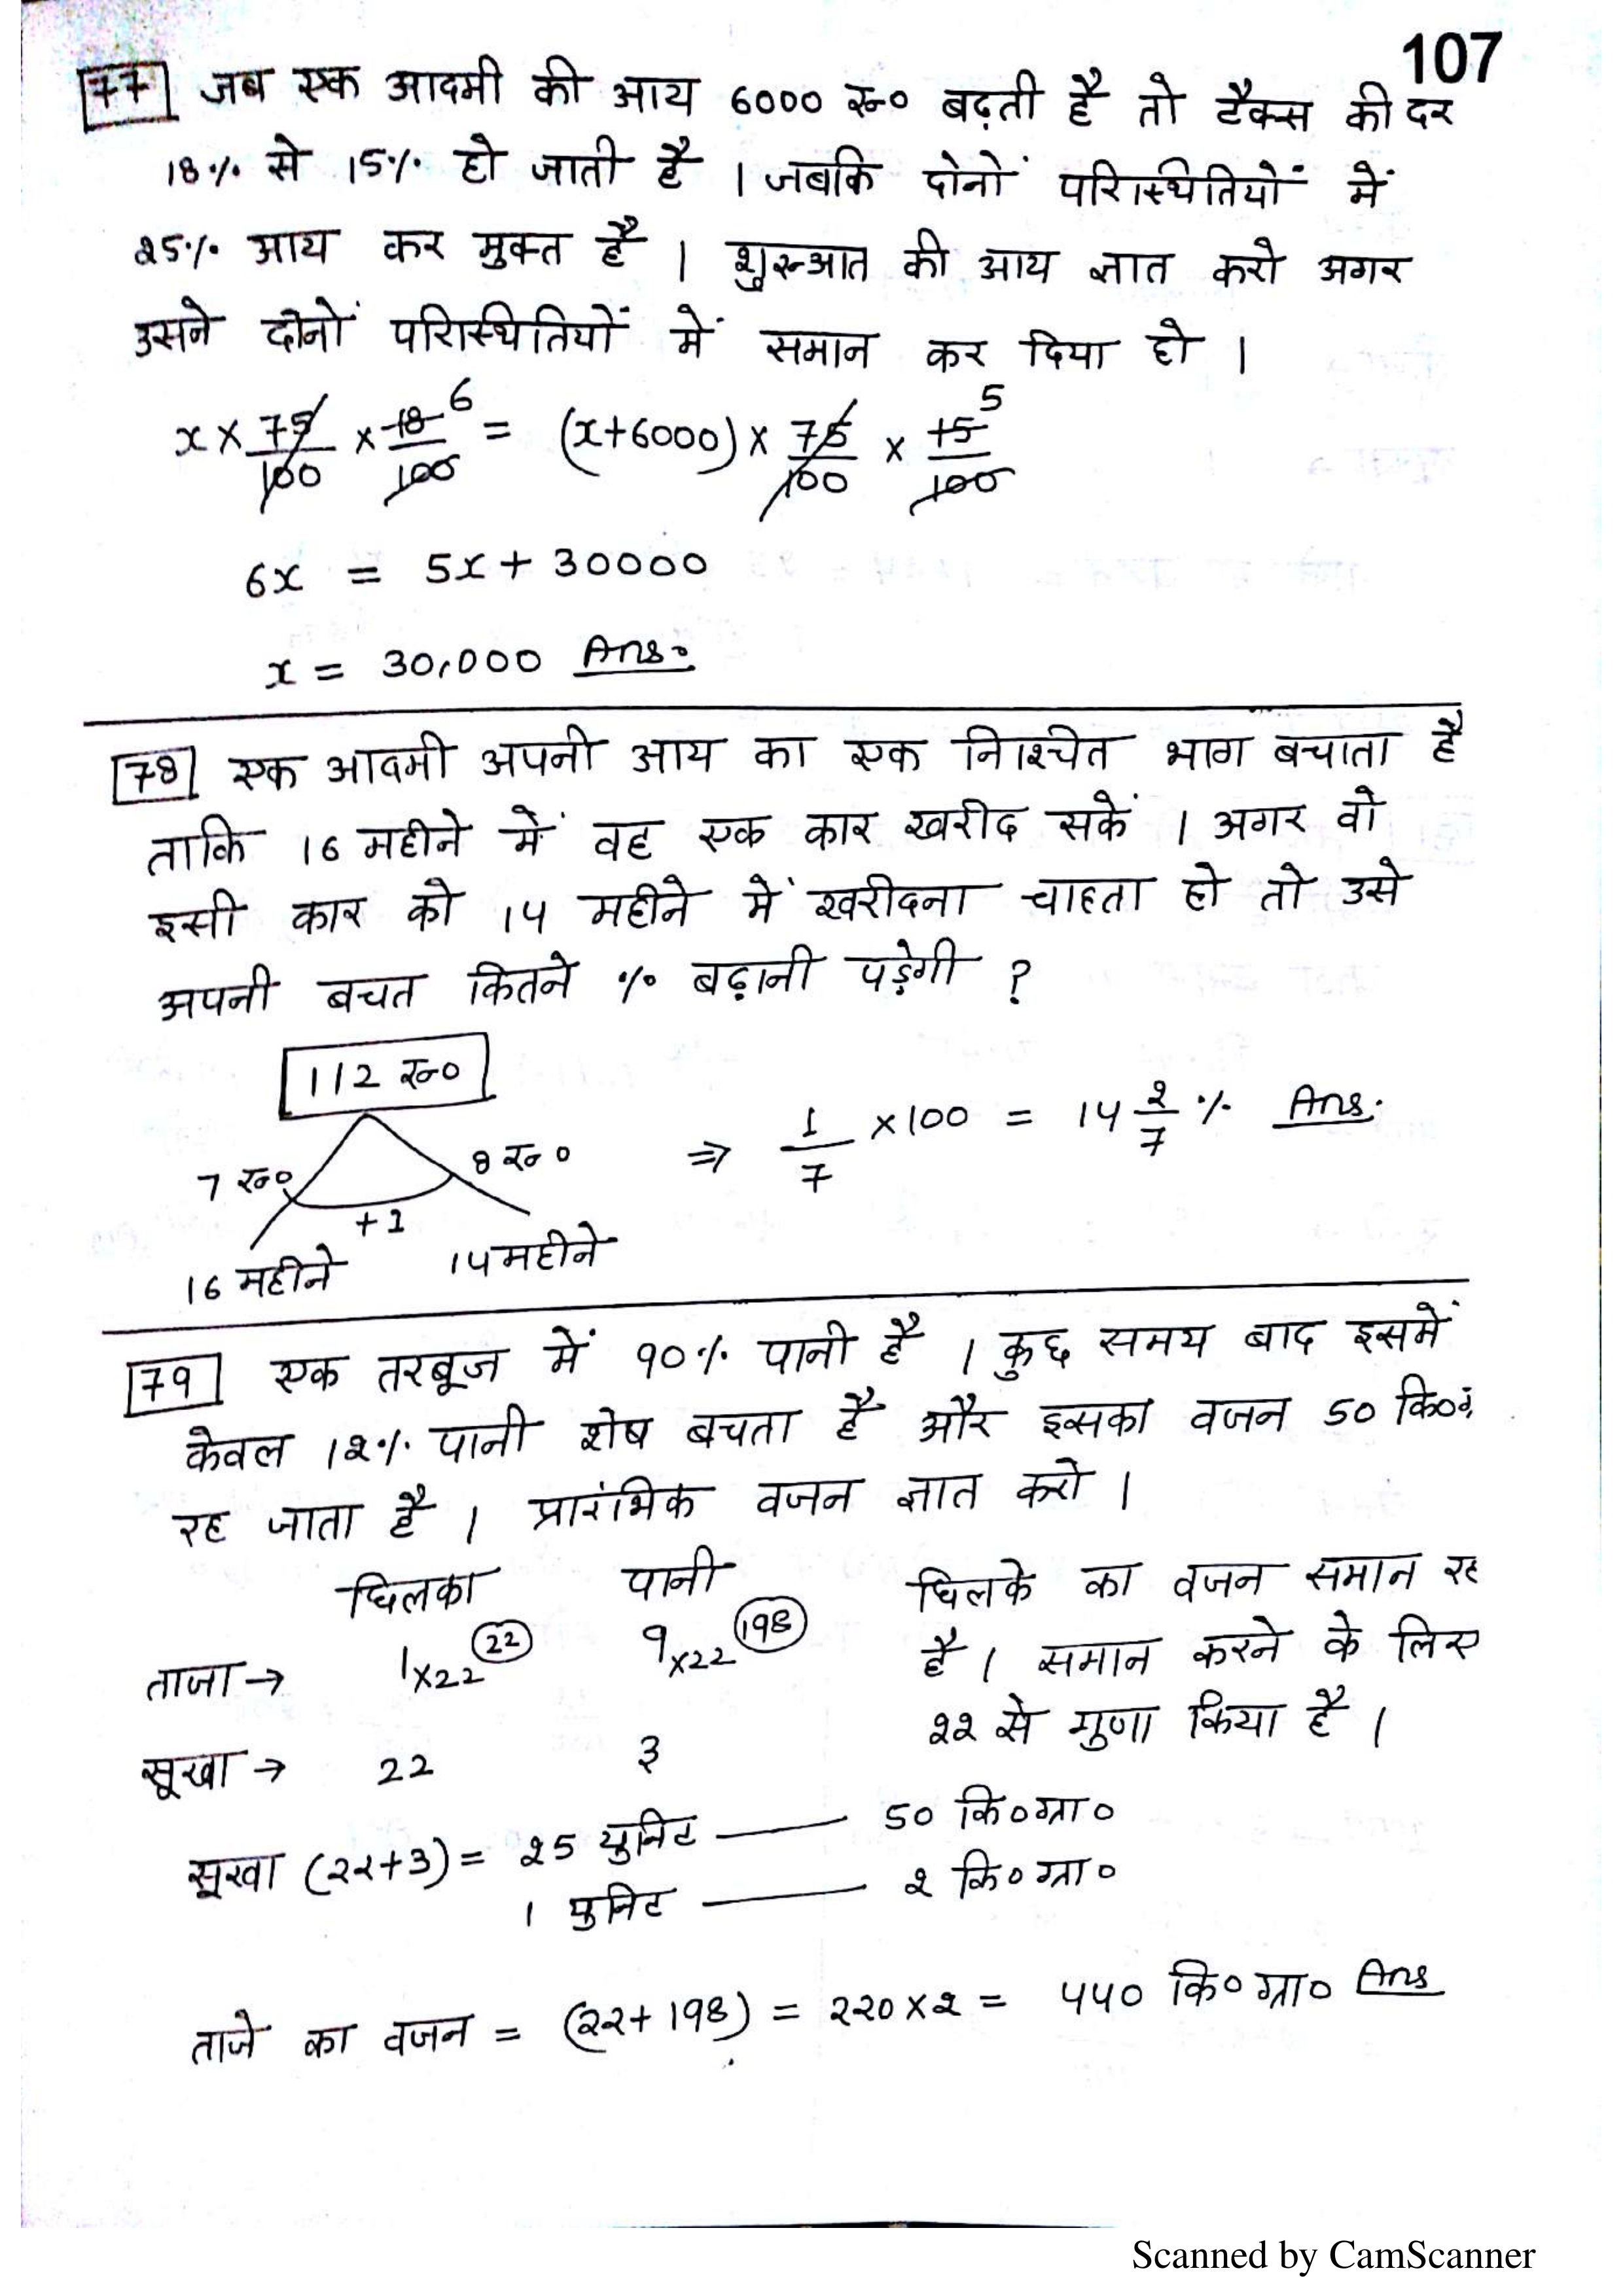 107
77 जब एक आदमी की आय 6000 रु० बढ़ती है तो टैक्स की दर
18% से 15% हो जाती है । जबकि दोनों परिस्थितियों में
25% आय कर मुक्त है । शुरुआत की आय ज्ञात करो अगर
उसने दोनों परिस्थितियों में समान कर दिया हो ।
x × 75/100 × 18/100 6 = (x+6000) × 75/100 × 15/100 5
6x = 5x + 30000
x = 30,000 Ans.
78 एक आदमी अपनी आय का एक निश्चित भाग बचाता है
ताकि 16 महीने में वह एक कार खरीद सकें । अगर वो
इसी कार को 14 महीने में खरीदना चाहता हो तो उसे
अपनी बचत कितने % बढ़ानी पड़ेगी ?
112 रु०
7 रु० 8 रु० ⇒ 1/7 ×100 = 14 2/7 % Ans.
+1
16 महीने 14 महीने
79 एक तरबूज में 90% पानी है । कुछ समय बाद इसमें
केवल 12% पानी शेष बचता है और इसका वजन 50 कि०
रह जाता है । प्रारंभिक वजन ज्ञात करो ।
छिलका पानी छिलके का वजन समान रह
ताजा → 1×22 22 9×22 198 है । समान करने के लिए
22 से गुणा किया है ।
सूखा → 22 3
सूखा (22+3) = 25 युनिट — 50 कि०ग्रा०
1 युनिट — 2 कि०ग्रा०
ताजे का वजन = (22+198) = 220×2 = 440 कि०ग्रा० Ans
Scanned by CamScanner